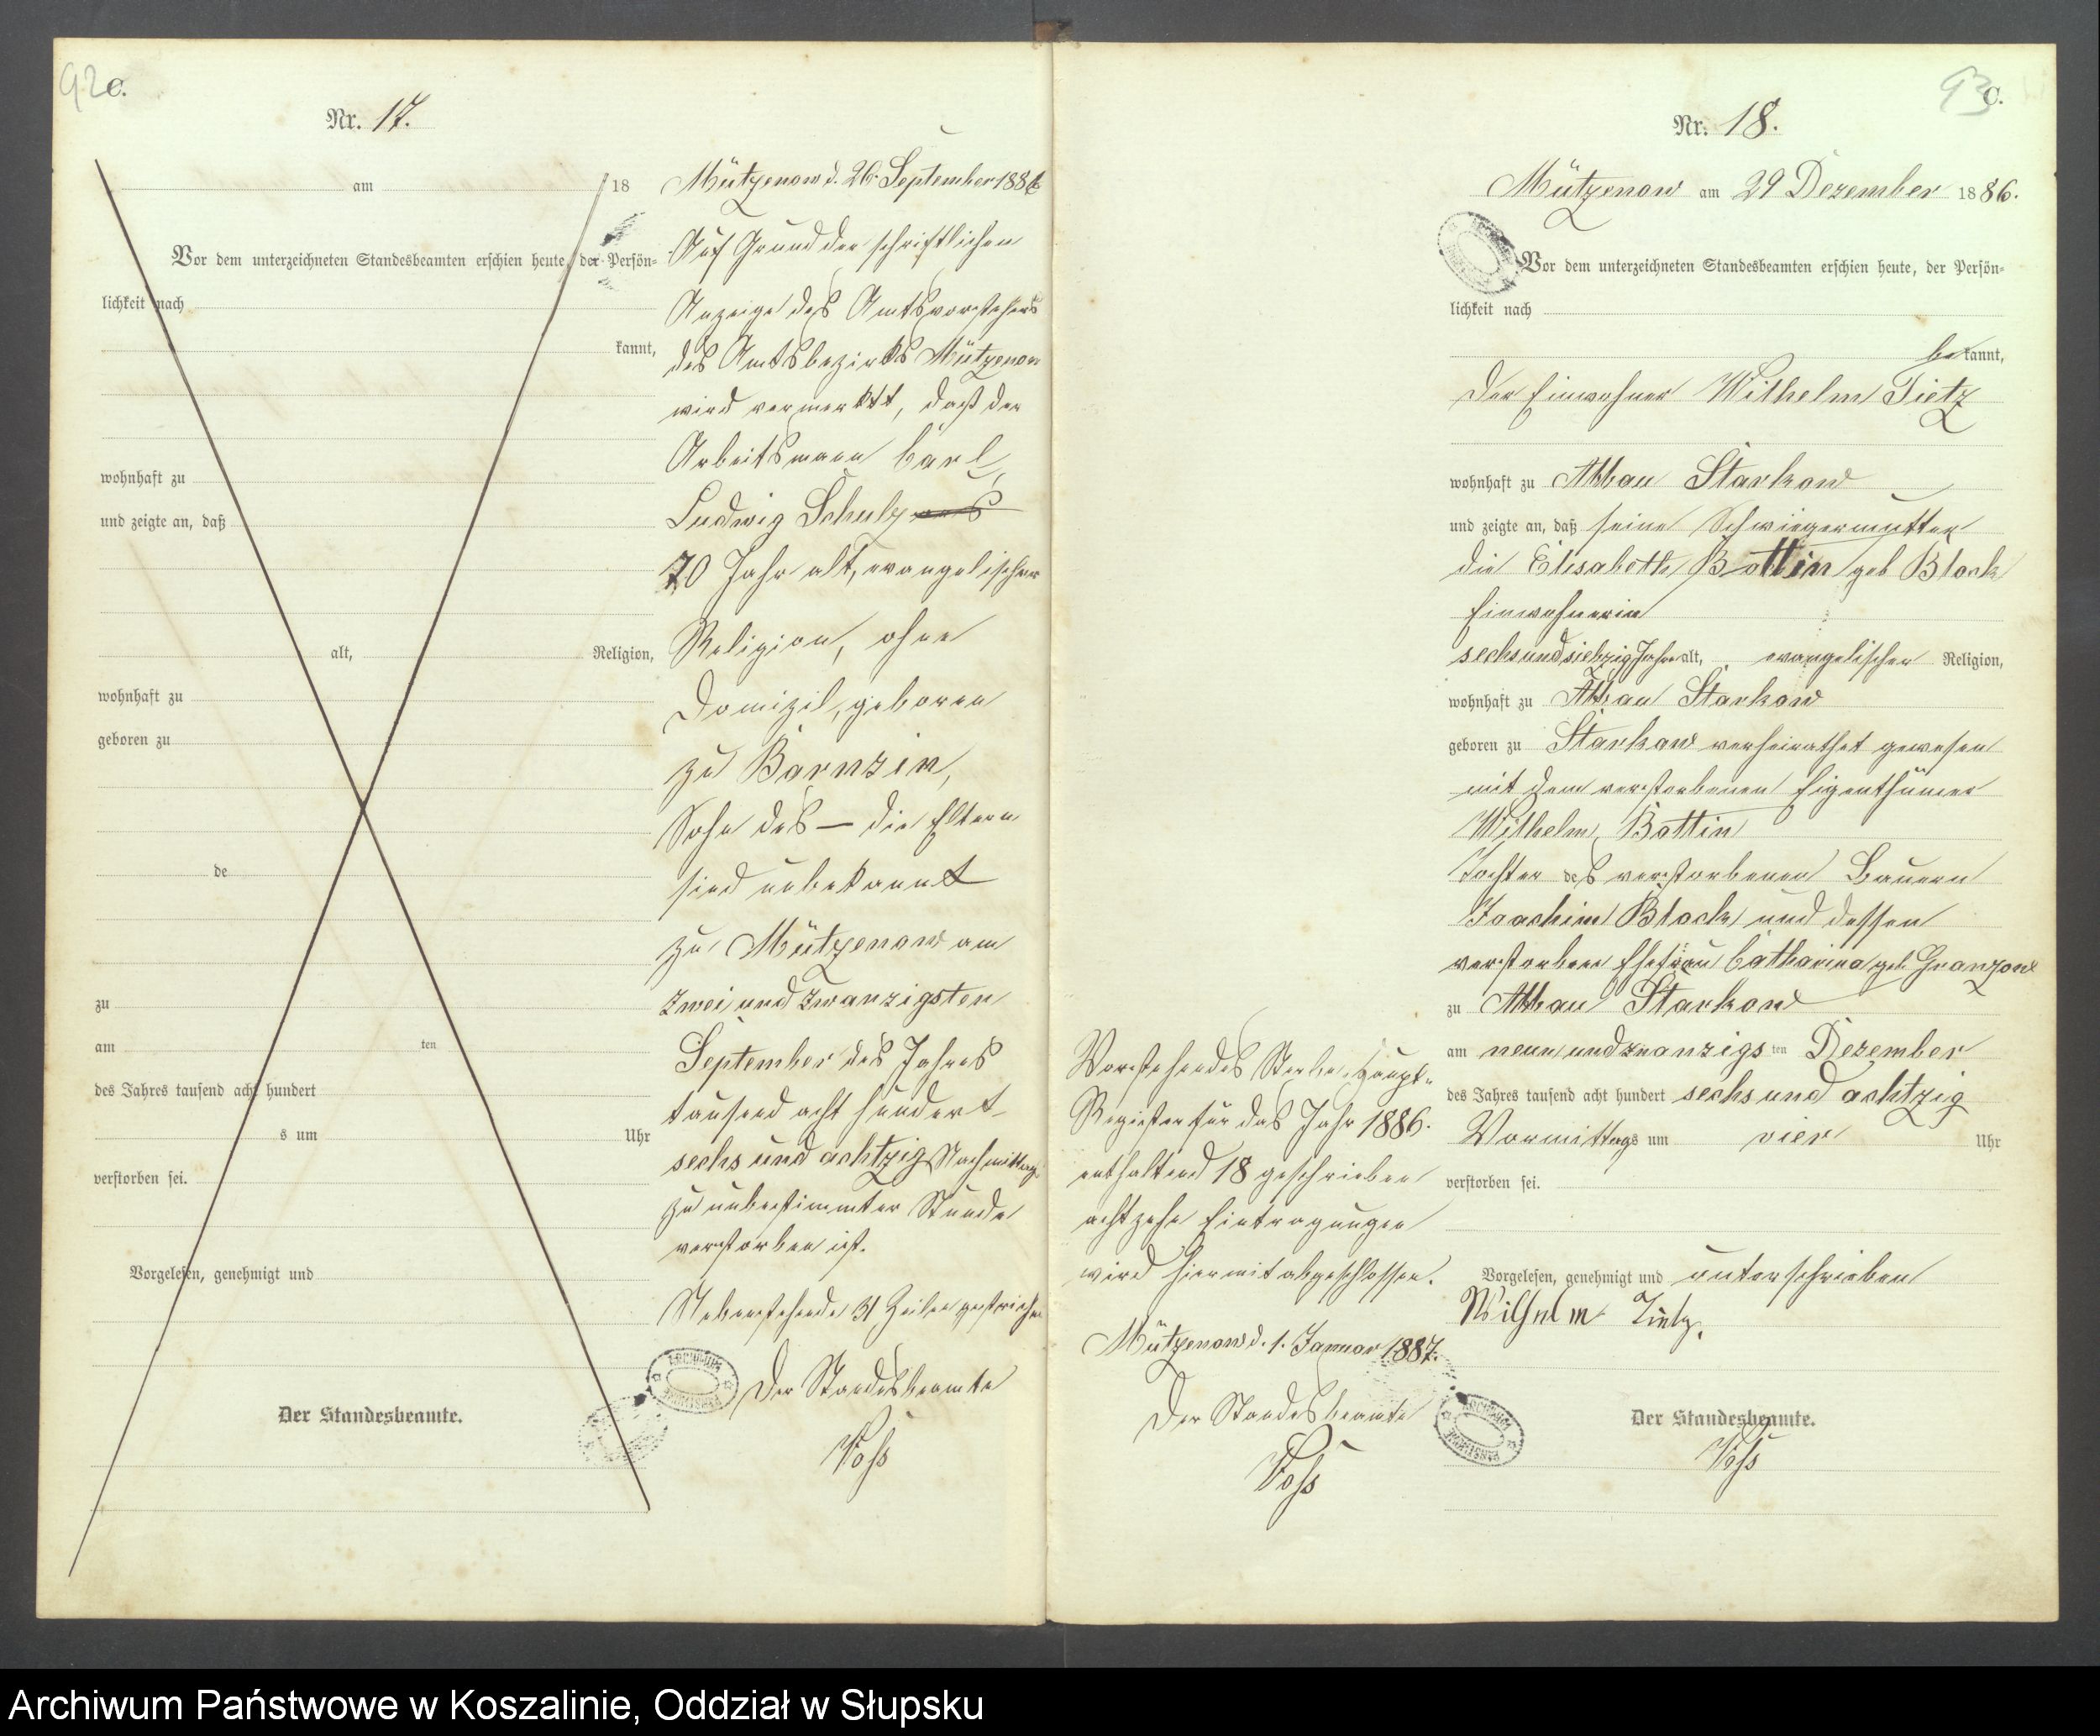 92
C.
Nr. 17.
am 18
Vor dem unterzeichneten Standesbeamten erschien heute, der Persön=
lichkeit nach
kannt,
wohnhaft zu
und zeigte an, daß
alt, Religion,
wohnhaft zu
geboren zu
de
zu
am ten
des Jahres tausend acht hundert
s um Uhr
verstorben sei.
Vorgelesen, genehmigt und
Der Standesbeamte.
Mützenow d. 26. September 1886
Auf Grund der schriftlichen
Anzeige des Amtsvorstehers
des Amtsbezirks Mützenow
wird vermerkt, daß der
Arbeitsmann Carl
Ludwig Schulz
70 Jahr alt, evangelischer
Religion, ohne
Domizil, geboren
zu Barnzin,
Sohn des — die Eltern
sind unbekannt
zu Mützenow am
zwei und zwanzigsten
September des Jahres
tausend acht hundert
sechs und achtzig Nachmittag
zu unbestimmter Stunde
verstorben ist.
Nebenstehende 31 Zeilen gestrichen
Der Standesbeamte
Voß
ARCHIWUM
93
C.
Nr. 18.
Mützenow am 29 Dezember 1886.
Vor dem unterzeichneten Standesbeamten erschien heute, der Persön=
lichkeit nach
be kannt,
der Einwohner Wilhelm Tietz
wohnhaft zu Abbau Starkow
und zeigte an, daß seine Schwiegermutter
die Elisabeth Bottin geb Block
Einwohnerin
sechsundsiebzig Jahre alt, evangelischer Religion,
wohnhaft zu Abbau Starkow
geboren zu Starkow verheirathet gewesen
mit dem verstorbenen Eigenthümer
Wilhelm Bottin
Tochter des verstorbenen Bauern
Joachim Block und dessen
verstorbene Ehefrau Catharina geb. Granzow
zu Abbau Starkow
am neun und zwanzigs ten Dezember
des Jahres tausend acht hundert sechs und achtzig
Vormittags um vier Uhr
verstorben sei.
Vorgelesen, genehmigt und unterschrieben
Wilhelm Tietz.
Der Standesbeamte.
Voß
Vorstehendes Sterbe-Haupt-
Register für das Jahr 1886.
enthaltend 18 geschrieben
achtzehn Eintragungen
wird hiermit abgeschlossen.
Mützenow d. 1. Januar 1887.
Der Standesbeamte
Voß
ARCHIWUM
Archiwum Państwowe w Koszalinie, Oddział w Słupsku